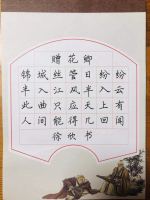 赠花卿
锦城丝管日纷纷
半入江风半入云
此曲只应天上有
人间能得几回闻
徐欣书